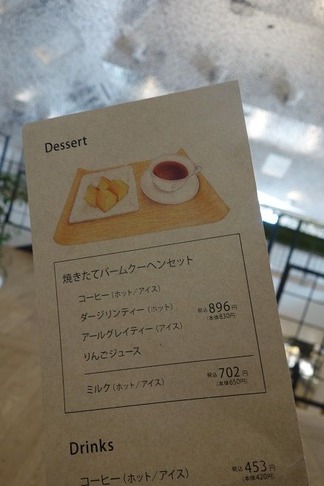 Dessert
焼きたてバームクーヘンセット
コーヒー(ホット/アイス)
ダージリンティー(ホット)
税込896円
(本体830円)
アールグレイティー(アイス)
りんごジュース
ミルク(ホット/アイス)
税込702円
(本体650円)
Drinks
コーヒー(ホット/アイス)
税込453円
(本体420円)